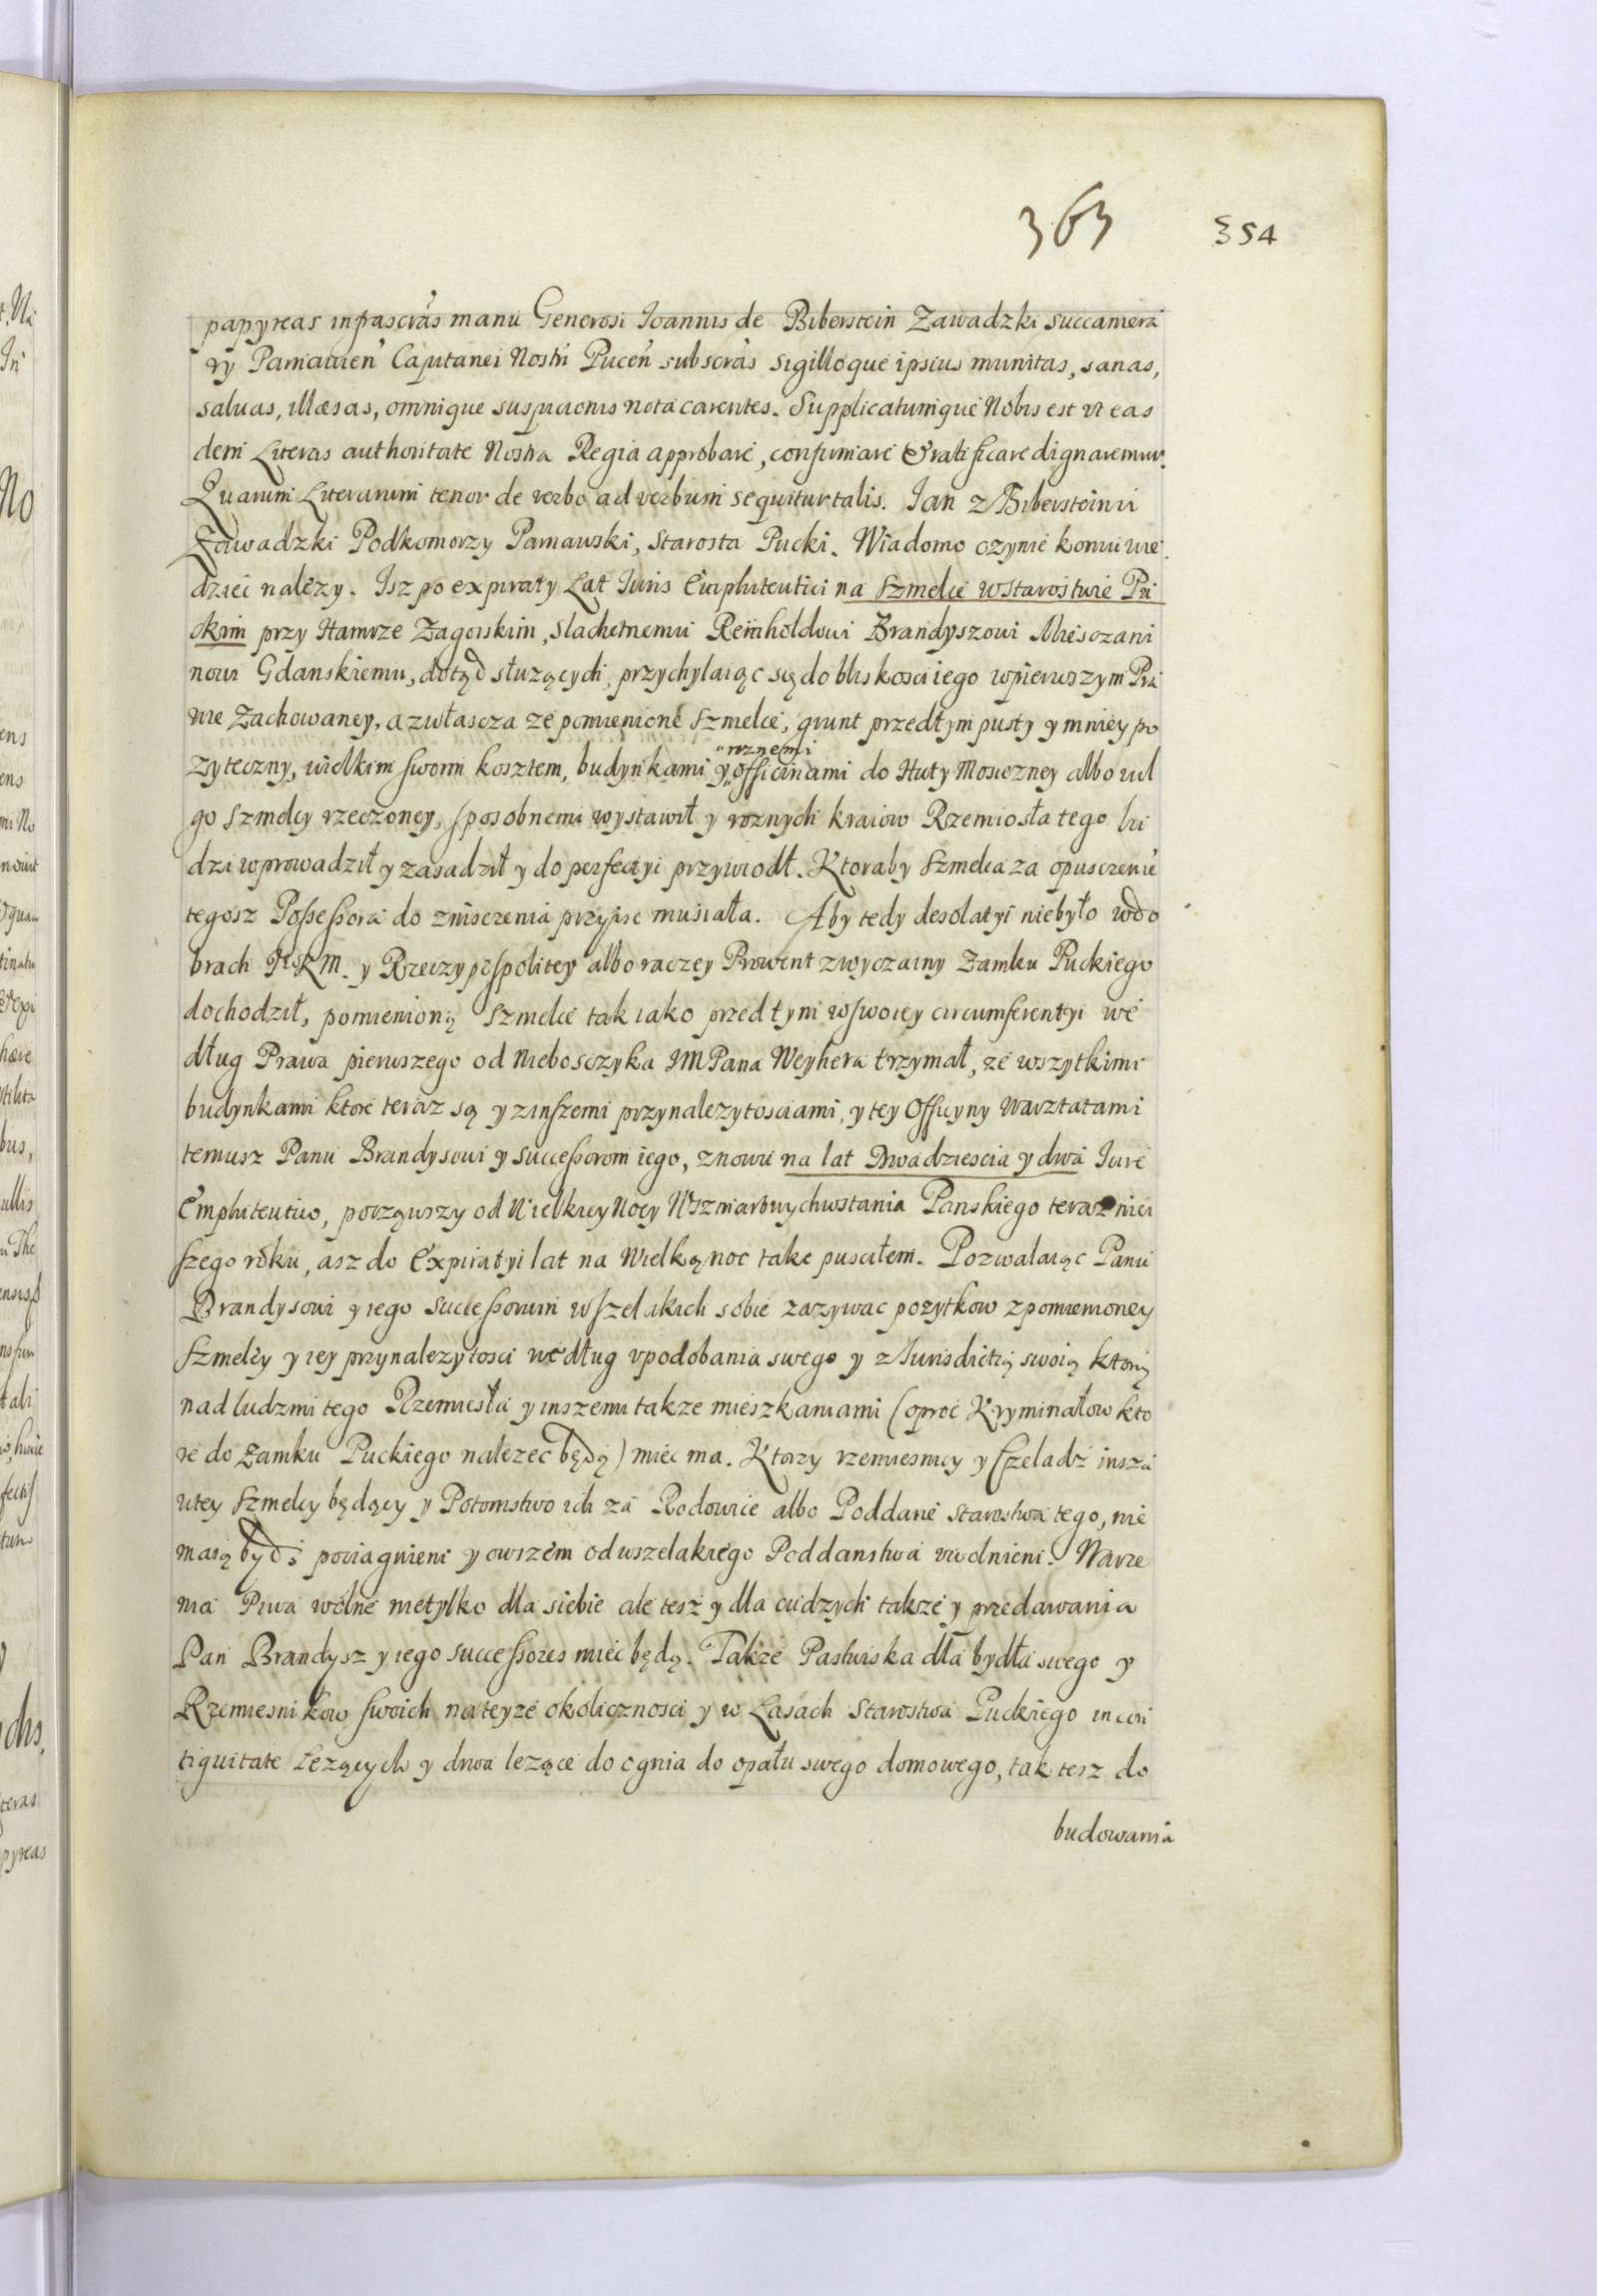 363 354
papyreas infrascrãs manu Generosi Joannis de Biberstein Zawadzki succamera
ry Parnawień Capitanei Nostri Puceń subscrãs sigilloque ipsius munitas, sanas,
saluas, illæsas, omnique suspicionis nota carentes. Supplicatumque Nobis est vt eas
dem Literas authoritate Nostra Regia approbare, confirmare & ratificare dignaremur.
Quarum Literarum tenor de verbo ad verbum sequitur talis. Jan z Bibersteinu
Zawadzki Podkomorzy Parnawski, Starosta Pucki. Wiadomo czynie komu wie
dzieć nalezy. Isz po expiraty Lat Juris Emphiteutici na Szmelce w Starostwie Pu
ckim przy Hamrze Zagorskim, Slachetnemu Reinholdowi Brandyszowi Miesczani
nowi Gdanskiemu, dotąd służących, przychylaiąc się do bliskosci iego w pierwszym Pra
wie Zachowaney, a zwłascza ze pomienione Szmelce, grunt przedtym pusty y mniey po
zyteczny, wielkim swoim kosztem, budynkami y roznemi officinami do Huty Mosiezney albo vul
go Szmelcy rzeczoney, sposobnemi wystawił y roznych kraiow Rzemiosła tego lu
dzi wprowadził y zasadził y do perfectyi przywiodł. Ktoraby Szmelca za opusczenie
tegosz Possessora do znisczenia przyisc musiała. Aby tedy desolatyi niebyło w do
brach JKM. y Rzeczypospolitey albo raczey Prowent zwyczainy Zamku Puckiego
dochodził, pomienioną Szmelce tak iako przedtym w swoiey circumferentyi we
dług Prawa pierwszego od Nieboszczyka JM Pana Weyhera trzymał, ze wszytkimi
budynkami ktore teraz są y z inszemi przynalezytosciami, y tey Officyny Warztatami
temusz Panu Brandysowi y Successorom iego, znowu na lat Dwadziescia y dwa Jure
Emphiteutico, począwszy od Wielkiey Nocy Wszmartwychwstania Panskiego teraznieі
szego roku, asz do Expiratyi lat na Wielkąnoc take pusciłem. Pozwalaiąc Panu
Brandysowi y iego Successorum wszelakich sobie zazywac pozytkow z pomienioney
Szmelcy y iey przynalezytosci według vpodobania swego y z Jurisdictią swoią ktorą
nad ludzmi tego Rzemiesła y inszemi takze mieszkaniami (oproc Kryminałow kto
re do Zamku Puckiego nalezec będą) miec ma. Ktorzy rzemiesnicy y Czeladz insza
w tey Szmelcy będący y Potomstwo ich za Rodowice albo Poddane Starostwa tego, nie
maią bydz pociagnieni y owszem od wszelakiego Poddanstwa vwolnieni. Warze
nia Piwa wolne nietylko dla siebie ale tesz y dla cudzych takze y przedawania
Pan Brandysz y iego successores miec będą. Takze Pastwiska dla bydła swego y
Rzemiesnikow swoich na teyze okolicznosci y w Lasach Starostwa Puckiego in con
tiguitate Lezących y drwa lezące do ognia do opału swego domowego, tak tesz do
budowania